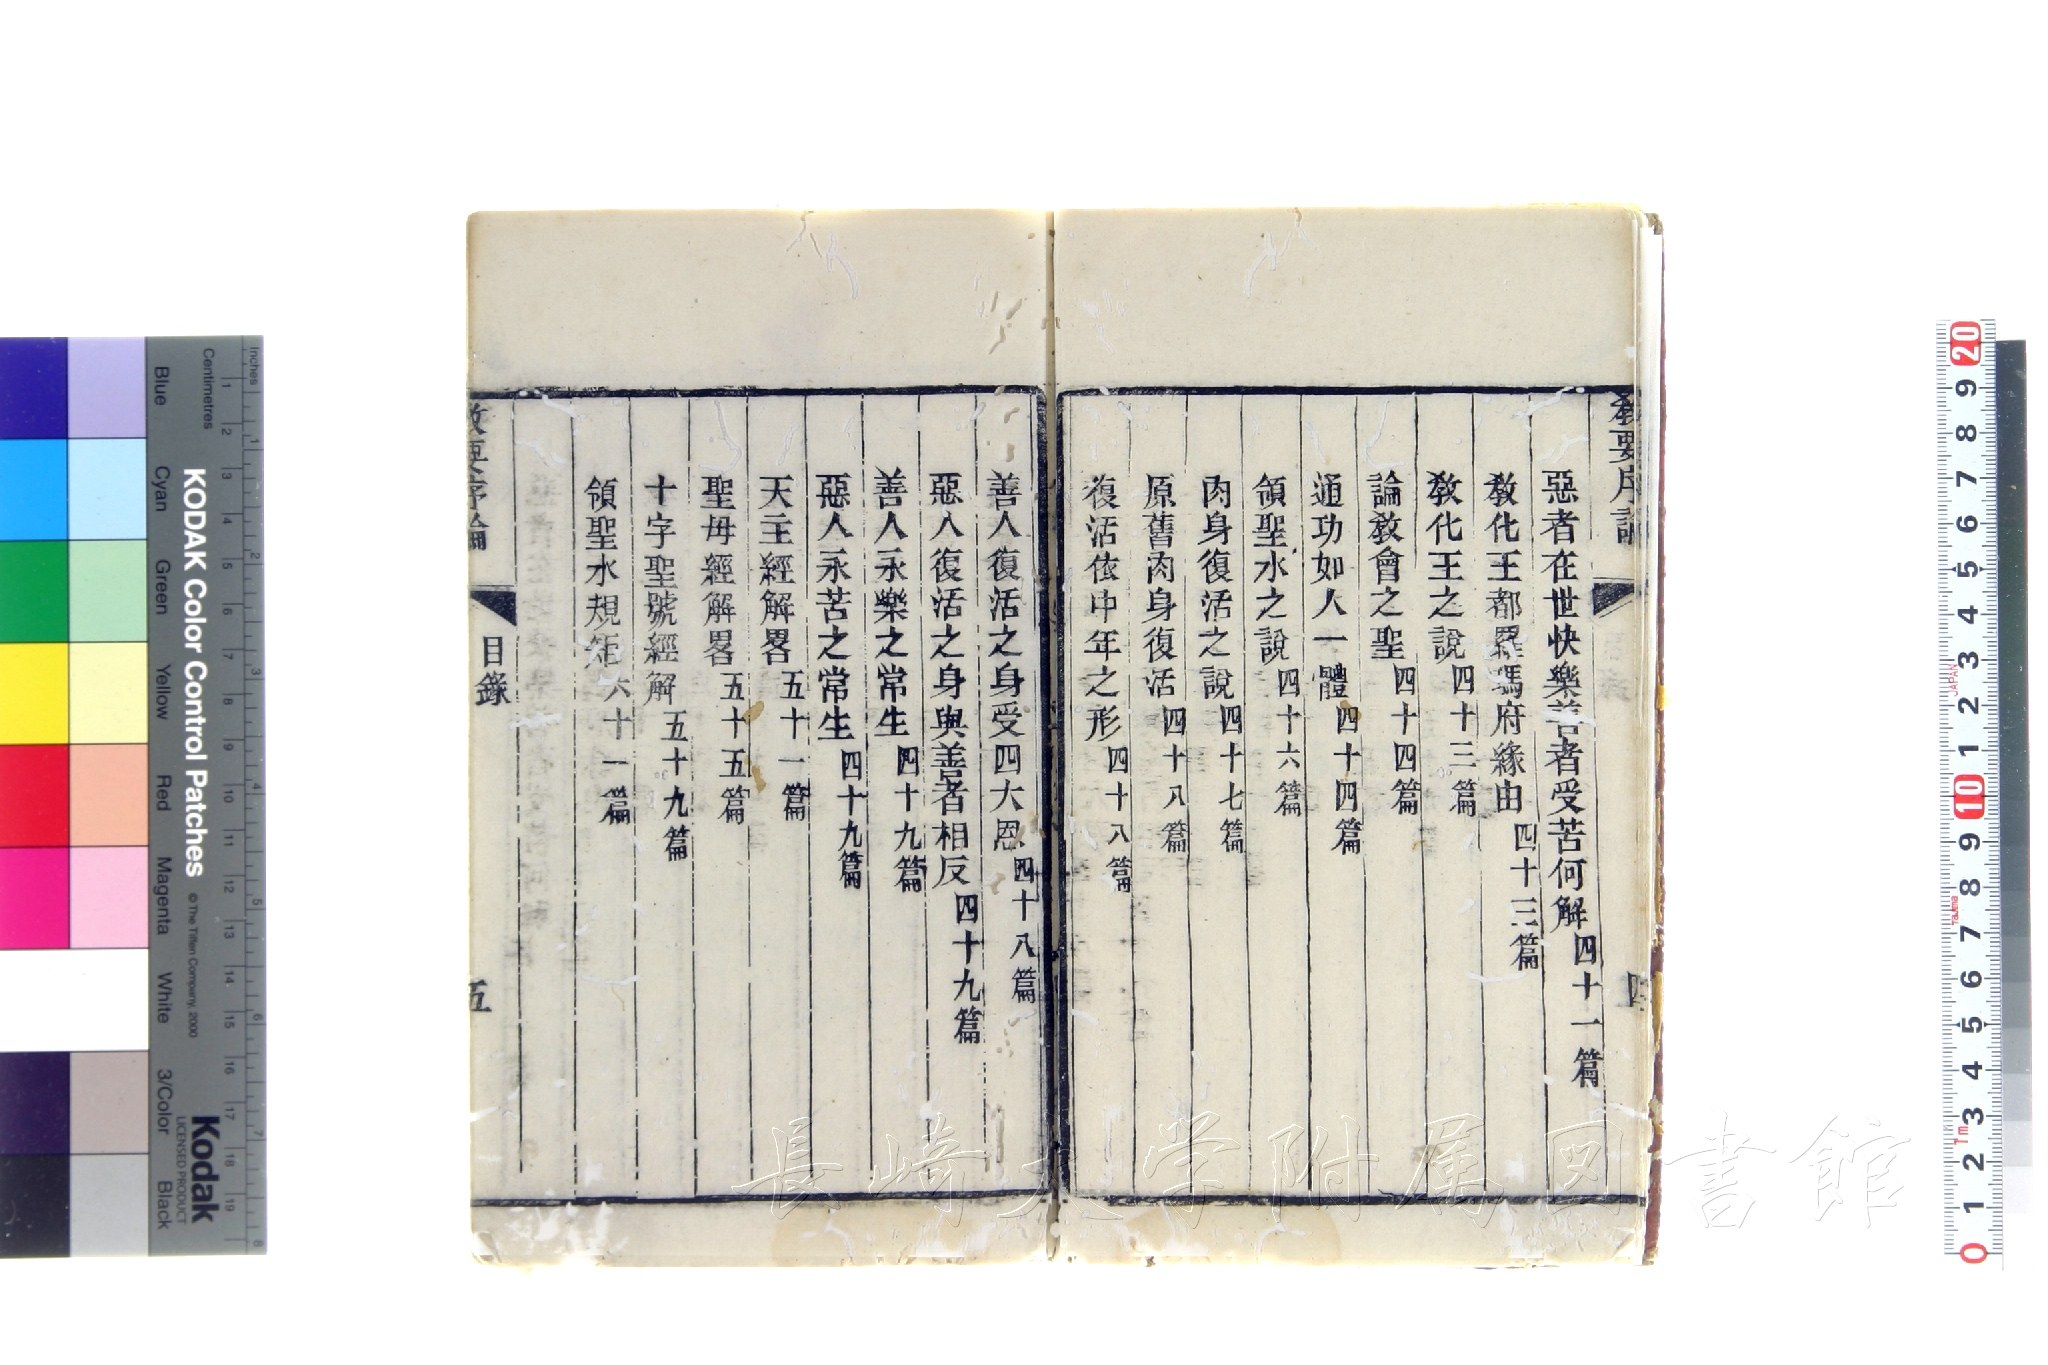 教要序論
四
惡者在世快樂善者受苦何解四十一篇
教化王都羅瑪府緣由四十三篇
教化王之說四十三篇
論教會之聖四十四篇
通功如人一體四十四篇
領聖水之說四十六篇
肉身復活之說四十七篇
原舊肉身復活四十八篇
復活依中年之形四十八篇
善人復活之身受四大恩四十八篇
惡人復活之身與善者相反四十九篇
善人永樂之常生四十九篇
惡人永苦之常生四十九篇
天主經解畧五十一篇
聖母經解畧五十五篇
十字聖號經解五十九篇
領聖水規矩六十一篇
教要序論
目錄
五
長崎大学附属図書館
KODAK Color Control Patches
© The Tiffen Company, 2000
Kodak
LICENSED PRODUCT
Inches
Centimetres
Blue
Cyan
Green
Yellow
Red
Magenta
White
3/Color
Black
1 2 3 4 5 6 7 8 9 10 11 12 13 14 15 16 17 18 19
1 2 3 4 5 6 7 8
20 9 8 7 6 5 4 3 2 1 10 9 8 7 6 5 4 3 2 1 0
JAPAN
Tajima